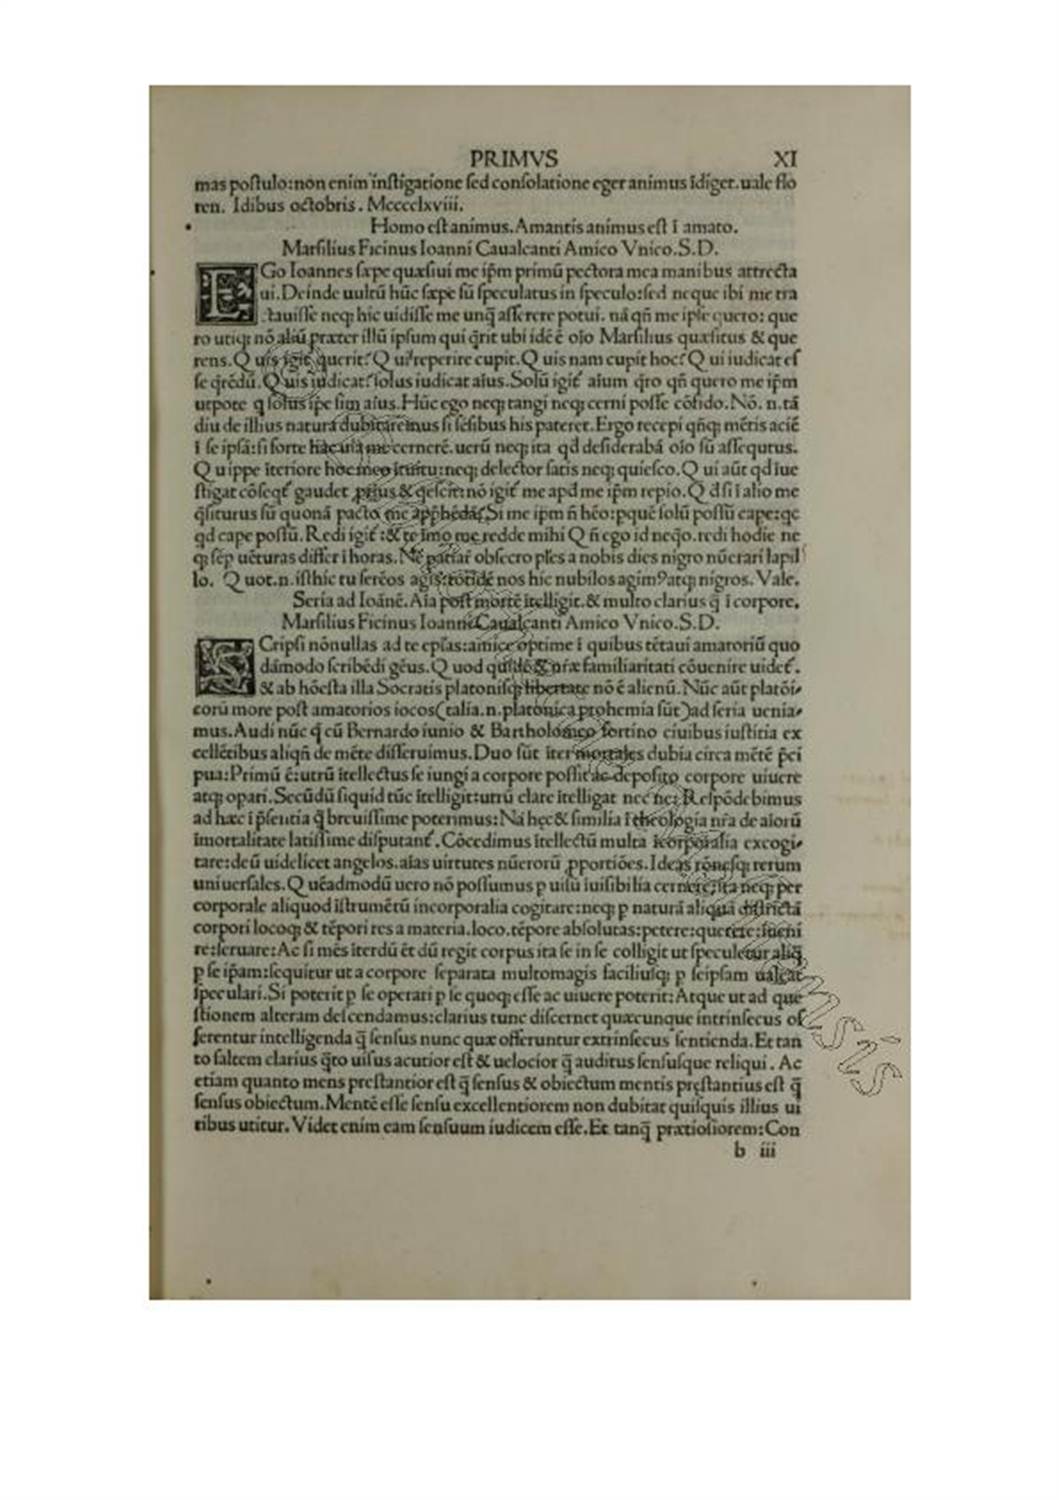 PRIMVS XI
mas poſtulo:non enim inſtigatione ſed conſolatione eger animus īdiget.uale flo
ren. Idibus octobris. Mcccclxviii.
Homo eſt animus.Amantis animus eſt ī amato.
Marſilius Ficinus Ioanni Caualcanti Amico Vnico.S.D.
EGo Ioannes ſæpe quæſiui me ip̄m primū pectora mea manibus attrecta
ui.Deinde uultū hūc ſæpe sū ſpeculatus in ſpeculo:ſed neque ibi me tra
ctauiſſe neq; hic uidiſſe me unq̄ aſſerere potui. nā qn̄ me ipſe quero: que
ro utiq; nō aliū præter illū ipſum qui q̄rit ubi idē ē oīo Marſilius quæſitus & que
rens.Quis igit̄ querit?Qui reperire cupit.Quis nam cupit hoc?Qui iudicat eſ
ſe q̄rēdū.Quis iudicat?ſolus iudicat aīus.Solū igit̄ aīum q̄ro qn̄ quero me ip̄m
utpote q ſolus ip̄e ſim aīus.Hūc ego neq; tangi neq; cerni poſſe cōfido.Nō. n.tā
diu de illius natura dubitaremus ſi ſēſibus his pateret.Ergo recepi qn̄q; mētis aciē
ī ſe ipſā:ſi forte hac uia me cernerē.uerū neq; ita qd deſiderabā oīo sū aſſequtus.
Quippe īteriore hoc meo ītuitu:neq; delector ſatis neq; quieſco.Qui aūt qd īue
ſtigat cōſeqt̄ gaudet prius & q̄eſcit:nō igit̄ me apd me ip̄m repio.Qd̄ ſi ī alio me
q̄ſiturus sū quonā pacto me app̄hēdā?Si me ipm n̄ hēo:pquē ſolū poſſū cape:qc
qd cape poſſū.Redi igit̄:& te īmo me redde mihi Qn̄ ego id neq̄o.redi hodie ne
q; ſēp uēturas differ ī horas.Ne patiar̄ obſecro pl̄es a nobis dies nigro nūerari lapil
lo. Quot.n.iſthic tu ſerēos agis:totidē nos hic nubilos agim⁹atq; nigros. Vale.
Seria ad Ioānē.Aīa poſt mortē ītelligit.& multo clarius q̄ ī corpore.
Marſilius Ficinus Ioanni Caualcanti Amico Vnico.S.D.
SCripſi nōnullas ad te epl̄as:amice optime ī quibus tētaui amatoriū quo
dāmodo ſcribēdi gēus.Quod quidē & nr̄æ familiaritati cōuenire uidet̄.
& ab hōeſta illa Socratis platoniſq; libertate nō ē alienū.Nūc aūt platōi-
corū more poſt amatorios iocos(talia.n.platonica prohemia sūt)ad ſeria uenia-
mus.Audi nūc q̄ cū Bernardo iunio & Bartholomeo fortino ciuibus iuſtitia ex
cellētibus aliqn̄ de mēte diſſeruimus.Duo sūt īter mortales dubia circa mētē p̄ci
pua:Primū ē:utrū ītellectus ſe iungi a corpore poſſit ac depoſito corpore uiuere
atq; opari.Secūdū ſiquid tūc ītelligit:utrū clare ītelligat nec ne: Reſpōdebimus
ad hæc ī p̄ſentia q̄ breuiſſime poterimus:Nā hęc & ſimilia ī theologia nr̄a de aīorū
īmortalitate latiſſime diſputant̄.Cōcedimus ītellectū multa īcorporalia excogi-
tare:deū uidelicet angelos.aīas uirtutes nūerorū pportiōes.Ideas rōneſq; rerum
uniuerſales.Quēadmodū uero nō poſſumus p uiſū īuiſibilia cernere:ita neq; per
corporale aliquod īſtrumētū incorporalia cogitare:neq; p naturā aliquā diſtrictā
corpori locoq; & tēpori res a materia.loco.tēpore abſolutas:petere:querere:īueni
re:ſeruare:Ac ſi mēs īterdū ēt dū regit corpus ita ſe in ſe colligit ut ſpeculetur aliq̄
p ſe ip̄am:ſequitur ut a corpore ſeparata multomagis faciliuſq; p ſeipſam ualeat
ſpeculari.Si poterit p ſe operari p ſe quoq; eſſe ac uiuere poterit:Atque ut ad que
ſtionem alteram deſcendamus:clarius tunc diſcernet quæcunque intrinſecus of
ferentur intelligenda q̄ ſenſus nunc quæ offeruntur extrinſecus ſentienda.Et tan
to ſaltem clarius q̄to uiſus acutior eſt & uelocior q̄ auditus ſenſuſque reliqui. Ac
etiam quanto mens preſtantior eſt q̄ ſenſus & obiectum mentis pręſtantius eſt q̄
ſenſus obiectum.Mentē eſſe ſenſu excellentiorem non dubitat quiſquis illius ui
ribus utitur.Videt enim eam ſenſuum iudicem eſſe.Et tanq̄ prætioſiorem:Con
b iii